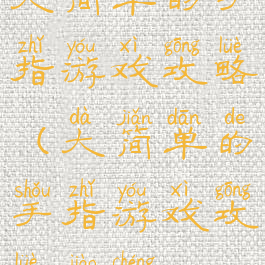 zhǐ yóu xì gōng lüè
指游戏攻略
dà jiǎn dān de
（大简单的
shǒu zhǐ yóu xì gōng
手指游戏攻
lüè jiào chéng